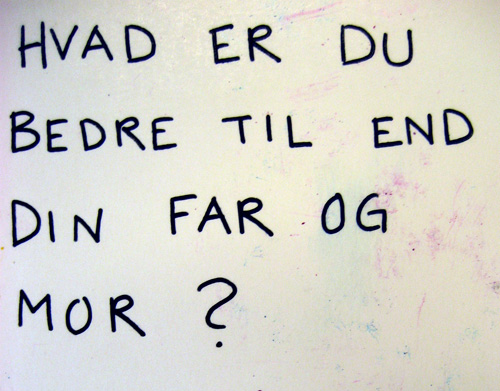 HVAD ER DU
BEDRE TIL END
DIN FAR OG
MOR ?